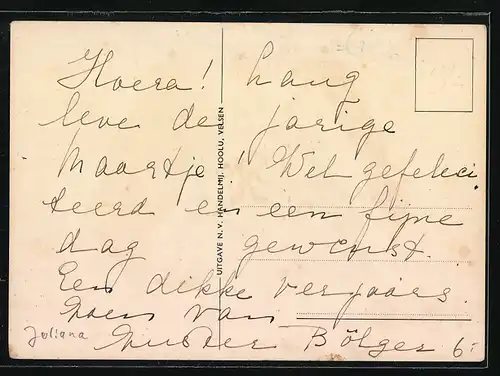 Hoera! Lang
leve de jarige
Maartje! Wel gefelici
teerd en een fijne
dag gewenst.
Een dikke verjaars.
zoen van
Zuster Bölger
Juliana
6.-
UITGAVE N.V. HANDELMIJ. HOOLU, VELSEN